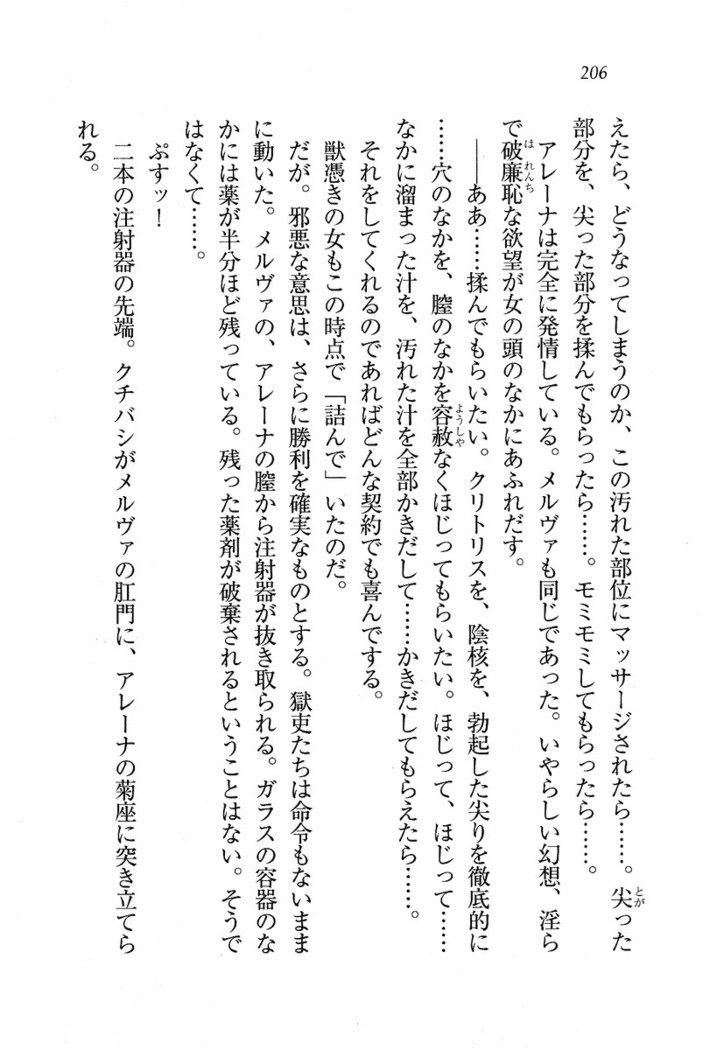 206
えたら、どうなってしまうのか、この汚れた部位にマッサージされたら……。尖った
部分を、尖った部分を揉んでもらったら……。モミモミしてもらったら……。
アレーナは完全に発情している。メルヴァも同じであった。いやらしい幻想、淫ら
で破廉恥な欲望が女の頭のなかにあふれだす。
――ああ……揉んでもらいたい。クリトリスを、陰核を、勃起した尖りを徹底的に
……穴のなかを、膣のなかを容赦なくほじってもらいたい。ほじって、ほじって……
なかに溜まった汁を、汚れた汁を全部かきだして……かきだしてもらえたら……。
それをしてくれるのであればどんな契約でも喜んでする。
獣憑きの女もこの時点で「詰んで」いたのだ。
だが。邪悪な意思は、さらに勝利を確実なものとする。獄吏たちは命令もないまま
に動いた。メルヴァの、アレーナの膣から注射器が抜き取られる。ガラスの容器のな
かには薬が半分ほど残っている。残った薬剤が破棄されるということはない。そうで
はなくて……。
ぷすッ！
二本の注射器の先端。クチバシがメルヴァの肛門に、アレーナの菊座に突き立てら
れる。